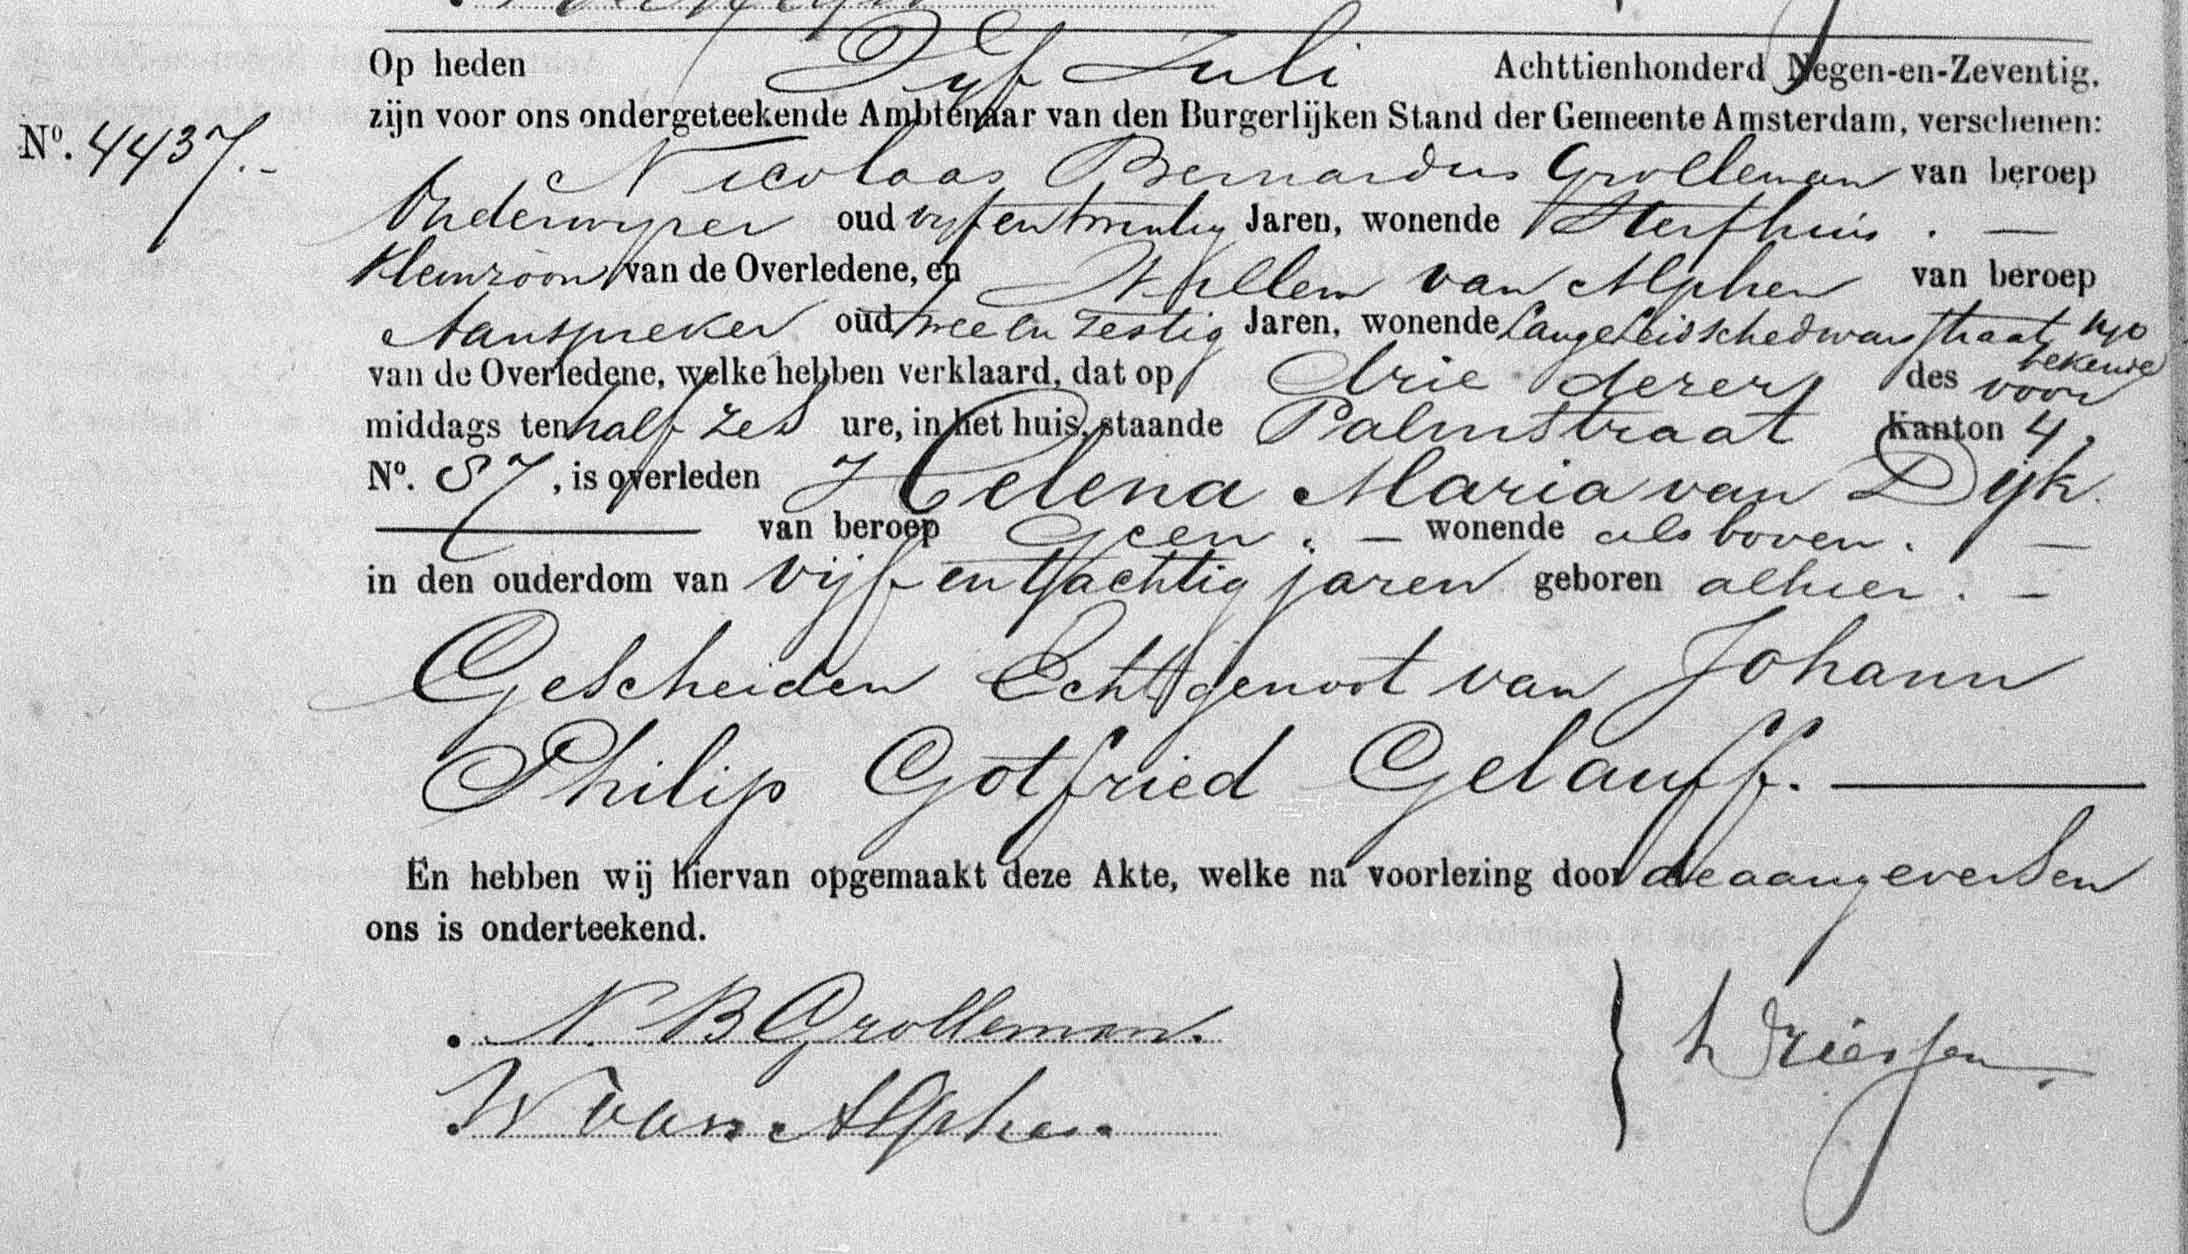 Op heden Vyf Juli Achttienhonderd Negen-en-Zeventig,
zijn voor ons ondergeteekende Ambtenaar van den Burgerlijken Stand der Gemeente Amsterdam, verschenen:
No. 4437.-
Nicolaas Bernardus Grolleman van beroep
Onderwyzer oud vyf en twintig Jaren, wonende Sterfhuis . —
Kleinzoon van de Overledene, en Willem van Alphen van beroep
Aanspreker oud twee en zestig Jaren, wonende Lange Leidschedwarsstraat
bekende
van de Overledene, welke hebben verklaard, dat op drie dezer des voor
middags ten half zes ure, in het huis, staande Palmstraat Kanton 4,
No. 87, is overleden Helena Maria van Dijk.
— van beroep Geen . — wonende als boven . —
in den ouderdom van vijf en tachtig jaren geboren alhier . —
Gescheiden Echtgenoot van Johann
Philip Gotfried Gelauff. —
En hebben wij hiervan opgemaakt deze Akte, welke na voorlezing door de aangevers en
ons is onderteekend.
N. B Grolleman.
W van Alphen.
Driessen